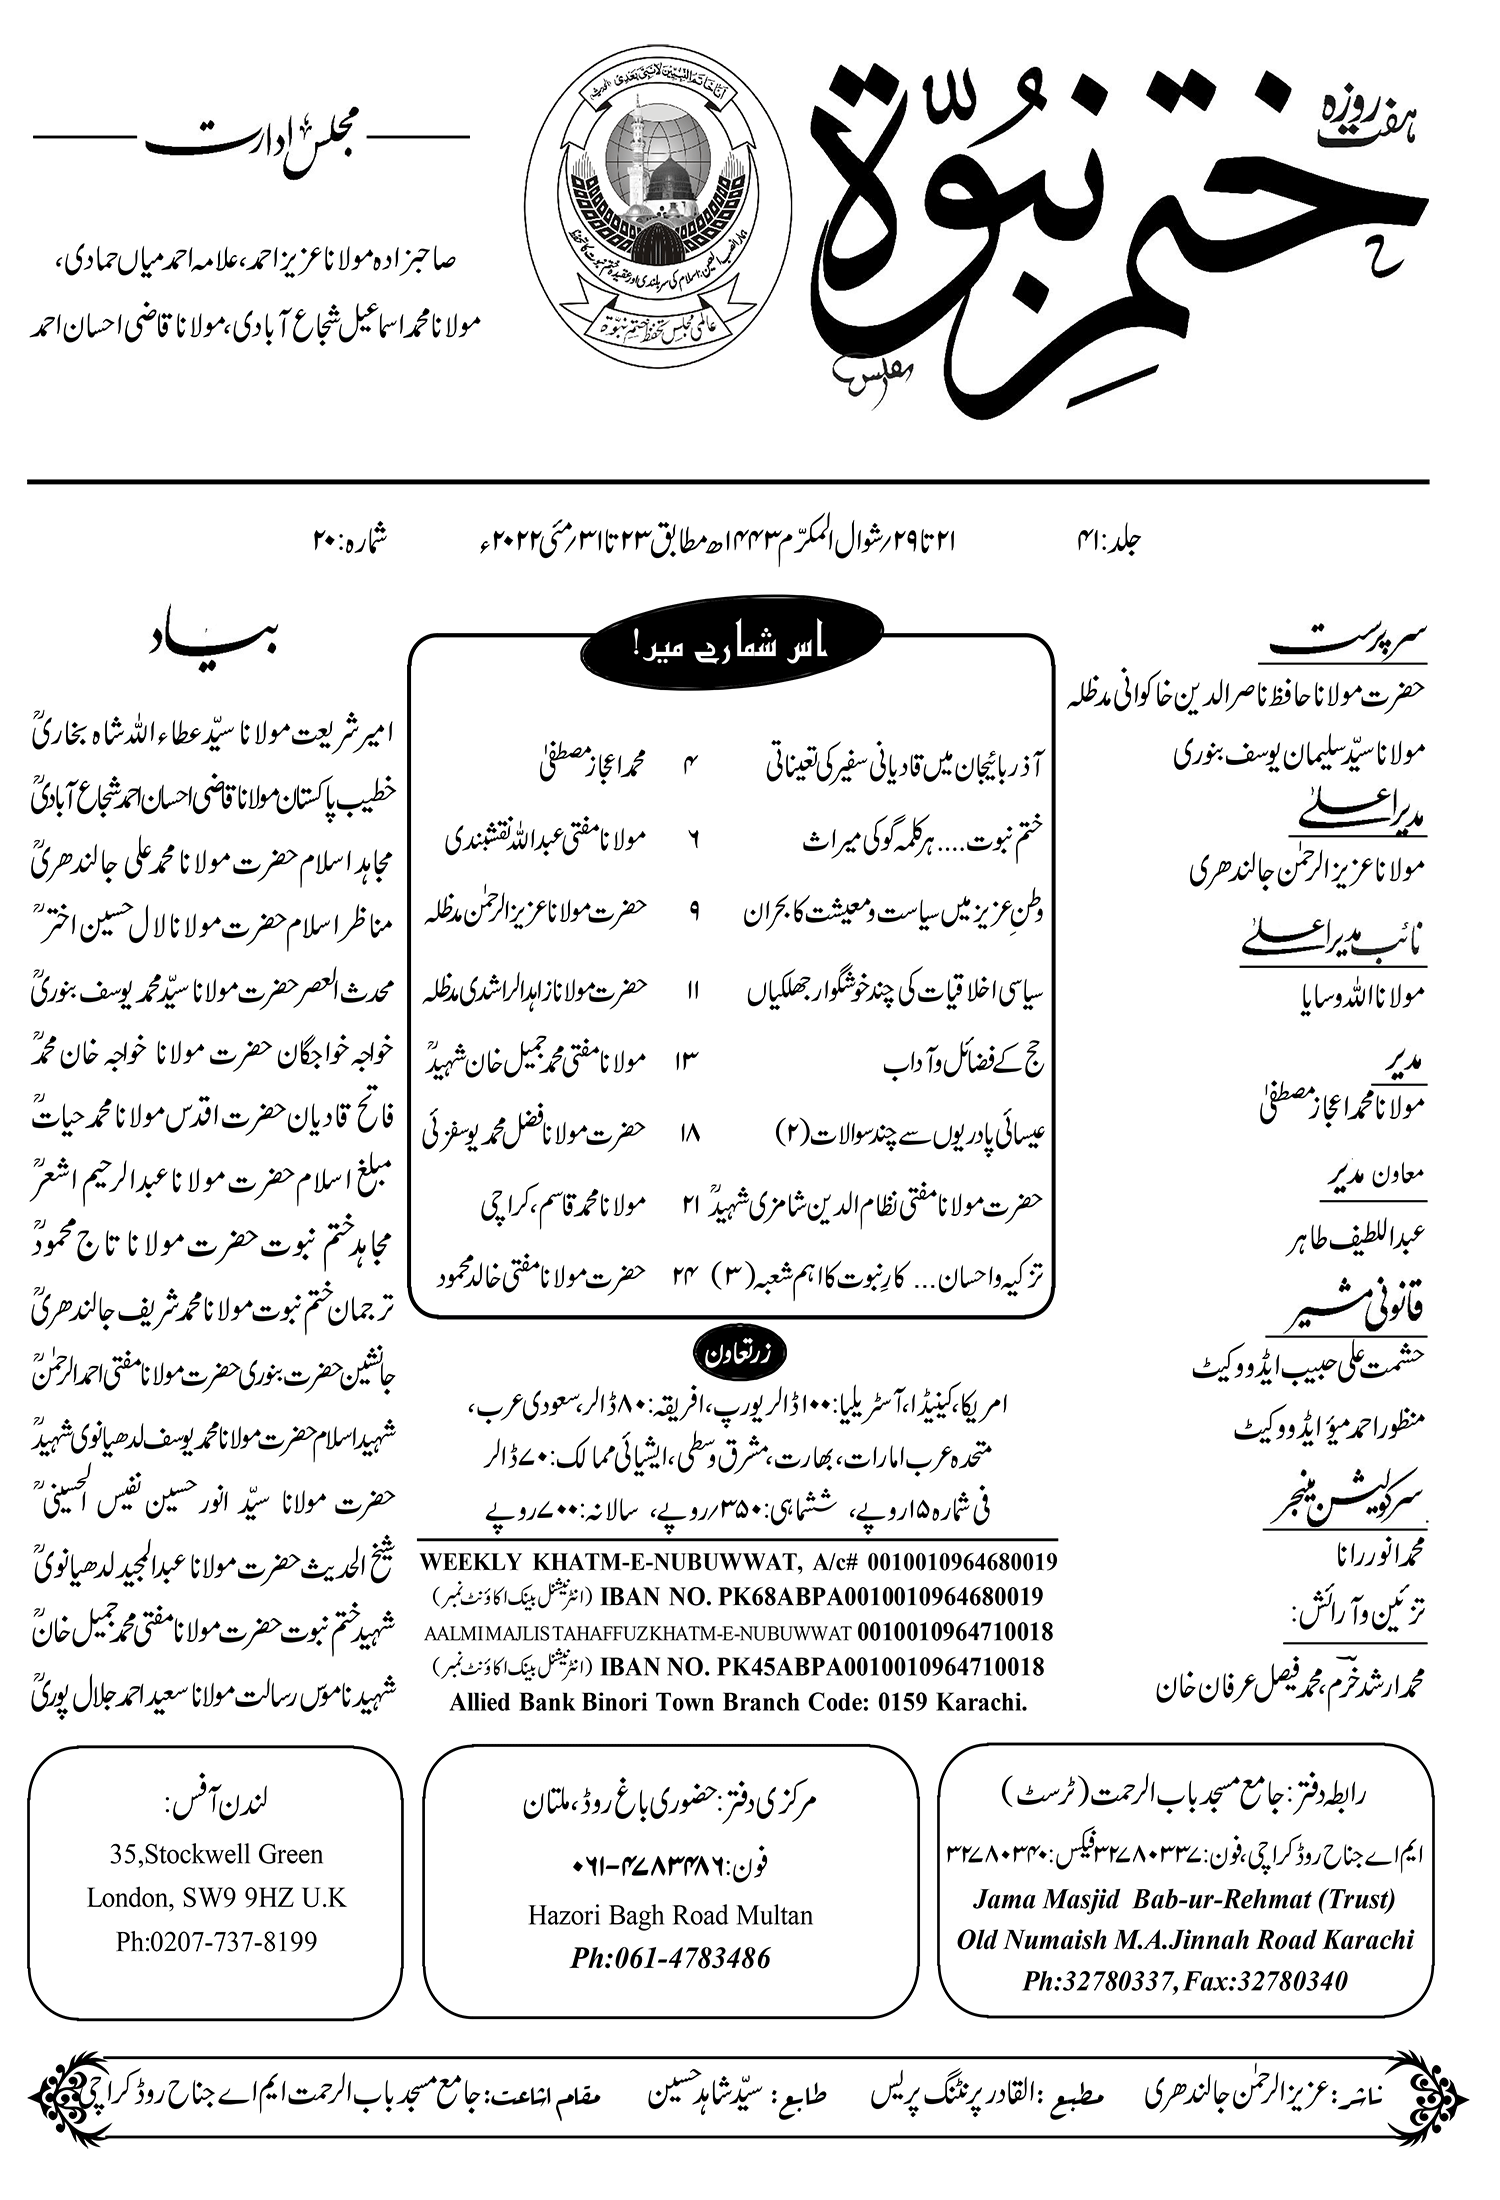 ہفت روزہ
ختم نبوّۃ
اَنَا خَاتَمُ النَّبِیّٖنَ لَا نَبِیَّ بَعْدِیْ
عالمی مجلس تحفظ ختم نبوّۃ
مجلس ادارت
صاحبزادہ مولانا عزیز احمد، علامہ احمد میاں حمادی،
مولانا محمد اسماعیل شجاع آبادی، مولانا قاضی احسان احمد
جلد: ۴۱ ۲۱ تا ۲۹/شوال المکرّم ۱۴۴۳ھ مطابق ۲۳ تا ۳۱/مئی ۲۰۲۲ء شمارہ: ۲۰
سرپرست
حضرت مولانا حافظ ناصر الدین خاکوانی مدظلہ
مولانا سیّد سلیمان یوسف بنوری
مدیر اعلےٰ
مولانا عزیز الرحمٰن جالندھری
نائب مدیر اعلےٰ
مولانا اللہ وسایا
مدیر
مولانا محمد اعجاز مصطفیٰ
معاون مدیر
عبداللطیف طاہر
قانونی مشیر
حشمت علی حبیب ایڈووکیٹ
منظور احمد میؤ ایڈووکیٹ
سرکولیشن مینجر
محمد انور رانا
تزئین و آرائش:
محمد ارشد خرم، محمد فیصل عرفان خان
اس شمارے میں!
آذربائیجان میں قادیانی سفیر کی تعیناتی ۴ محمد اعجاز مصطفیٰ
ختم نبوت.... ہر کلمہ گو کی میراث ۶ مولانا مفتی عبداللہ نقشبندی
وطنِ عزیز میں سیاست و معیشت کا بحران ۹ حضرت مولانا عزیز الرحمٰن مدظلہ
سیاسی اخلاقیات کی چند خوشگوار جھلکیاں ۱۱ حضرت مولانا زاہد الراشدی مدظلہ
حج کے فضائل و آداب ۱۳ مولانا مفتی محمد جمیل خان شہیدؒ
عیسائی پادریوں سے چند سوالات (۲) ۱۸ حضرت مولانا فضل محمد یوسفزئی
حضرت مولانا مفتی نظام الدین شامزی شہیدؒ ۲۱ مولانا محمد قاسم، کراچی
تزکیہ و احسان... کارِ نبوت کا اہم شعبہ (۳) ۲۴ حضرت مولانا مفتی خالد محمود
زر تعاون
امریکا، کینیڈا، آسٹریلیا: ۱۰۰ ڈالر یورپ، افریقہ: ۸۰ ڈالر، سعودی عرب،
متحدہ عرب امارات، بھارت، مشرق وسطی، ایشیائی ممالک: ۷۰ ڈالر
فی شمارہ ۱۵ روپے، ششماہی: ۳۵۰/روپے، سالانہ: ۷۰۰ روپے
WEEKLY KHATM-E-NUBUWWAT, A/c# 0010010964680019
IBAN NO. PK68ABPA0010010964680019 (انٹرنیشنل بینک اکاؤنٹ نمبر)
AALMI MAJLIS TAHAFFUZ KHATM-E-NUBUWWAT 0010010964710018
IBAN NO. PK45ABPA0010010964710018 (انٹرنیشنل بینک اکاؤنٹ نمبر)
Allied Bank Binori Town Branch Code: 0159 Karachi.
بیاد
امیر شریعت مولانا سیّد عطاء اللہ شاہ بخاریؒ
خطیب پاکستان مولانا قاضی احسان احمد شجاع آبادیؒ
مجاہد اسلام حضرت مولانا محمد علی جالندھریؒ
مناظر اسلام حضرت مولانا لال حسین اخترؒ
محدث العصر حضرت مولانا سیّد محمد یوسف بنوریؒ
خواجہ خواجگان حضرت مولانا خواجہ خان محمدؒ
فاتح قادیان حضرت اقدس مولانا محمد حیاتؒ
مبلغ اسلام حضرت مولانا عبدالرحیم اشعرؒ
مجاہد ختم نبوت حضرت مولانا تاج محمودؒ
ترجمان ختم نبوت مولانا محمد شریف جالندھریؒ
جانشین حضرت بنوری حضرت مولانا مفتی احمد الرحمٰنؒ
شہید اسلام حضرت مولانا محمد یوسف لدھیانوی شہیدؒ
حضرت مولانا سیّد انور حسین نفیس الحسینیؒ
شیخ الحدیث حضرت مولانا عبدالمجید لدھیانویؒ
شہید ختم نبوت حضرت مولانا مفتی محمد جمیل خانؒ
شہید ناموس رسالت مولانا سعید احمد جلال پوریؒ
رابطہ دفتر: جامع مسجد باب الرحمت (ٹرسٹ)
ایم اے جناح روڈ کراچی، فون: ۳۲۷۸۰۳۳۷ فیکس: ۳۲۷۸۰۳۴۰
Jama Masjid Bab-ur-Rehmat (Trust)
Old Numaish M.A.Jinnah Road Karachi
Ph:32780337, Fax:32780340
مرکزی دفتر: حضوری باغ روڈ، ملتان
فون: ۰۶۱-۴۷۸۳۴۸۶
Hazori Bagh Road Multan
Ph:061-4783486
لندن آفس:
35,Stockwell Green
London, SW9 9HZ U.K
Ph:0207-737-8199
ناشر: عزیز الرحمٰن جالندھری مطبع: القادر پرنٹنگ پریس طابع: سیّد شاہد حسین مقام اشاعت: جامع مسجد باب الرحمت ایم اے جناح روڈ کراچی